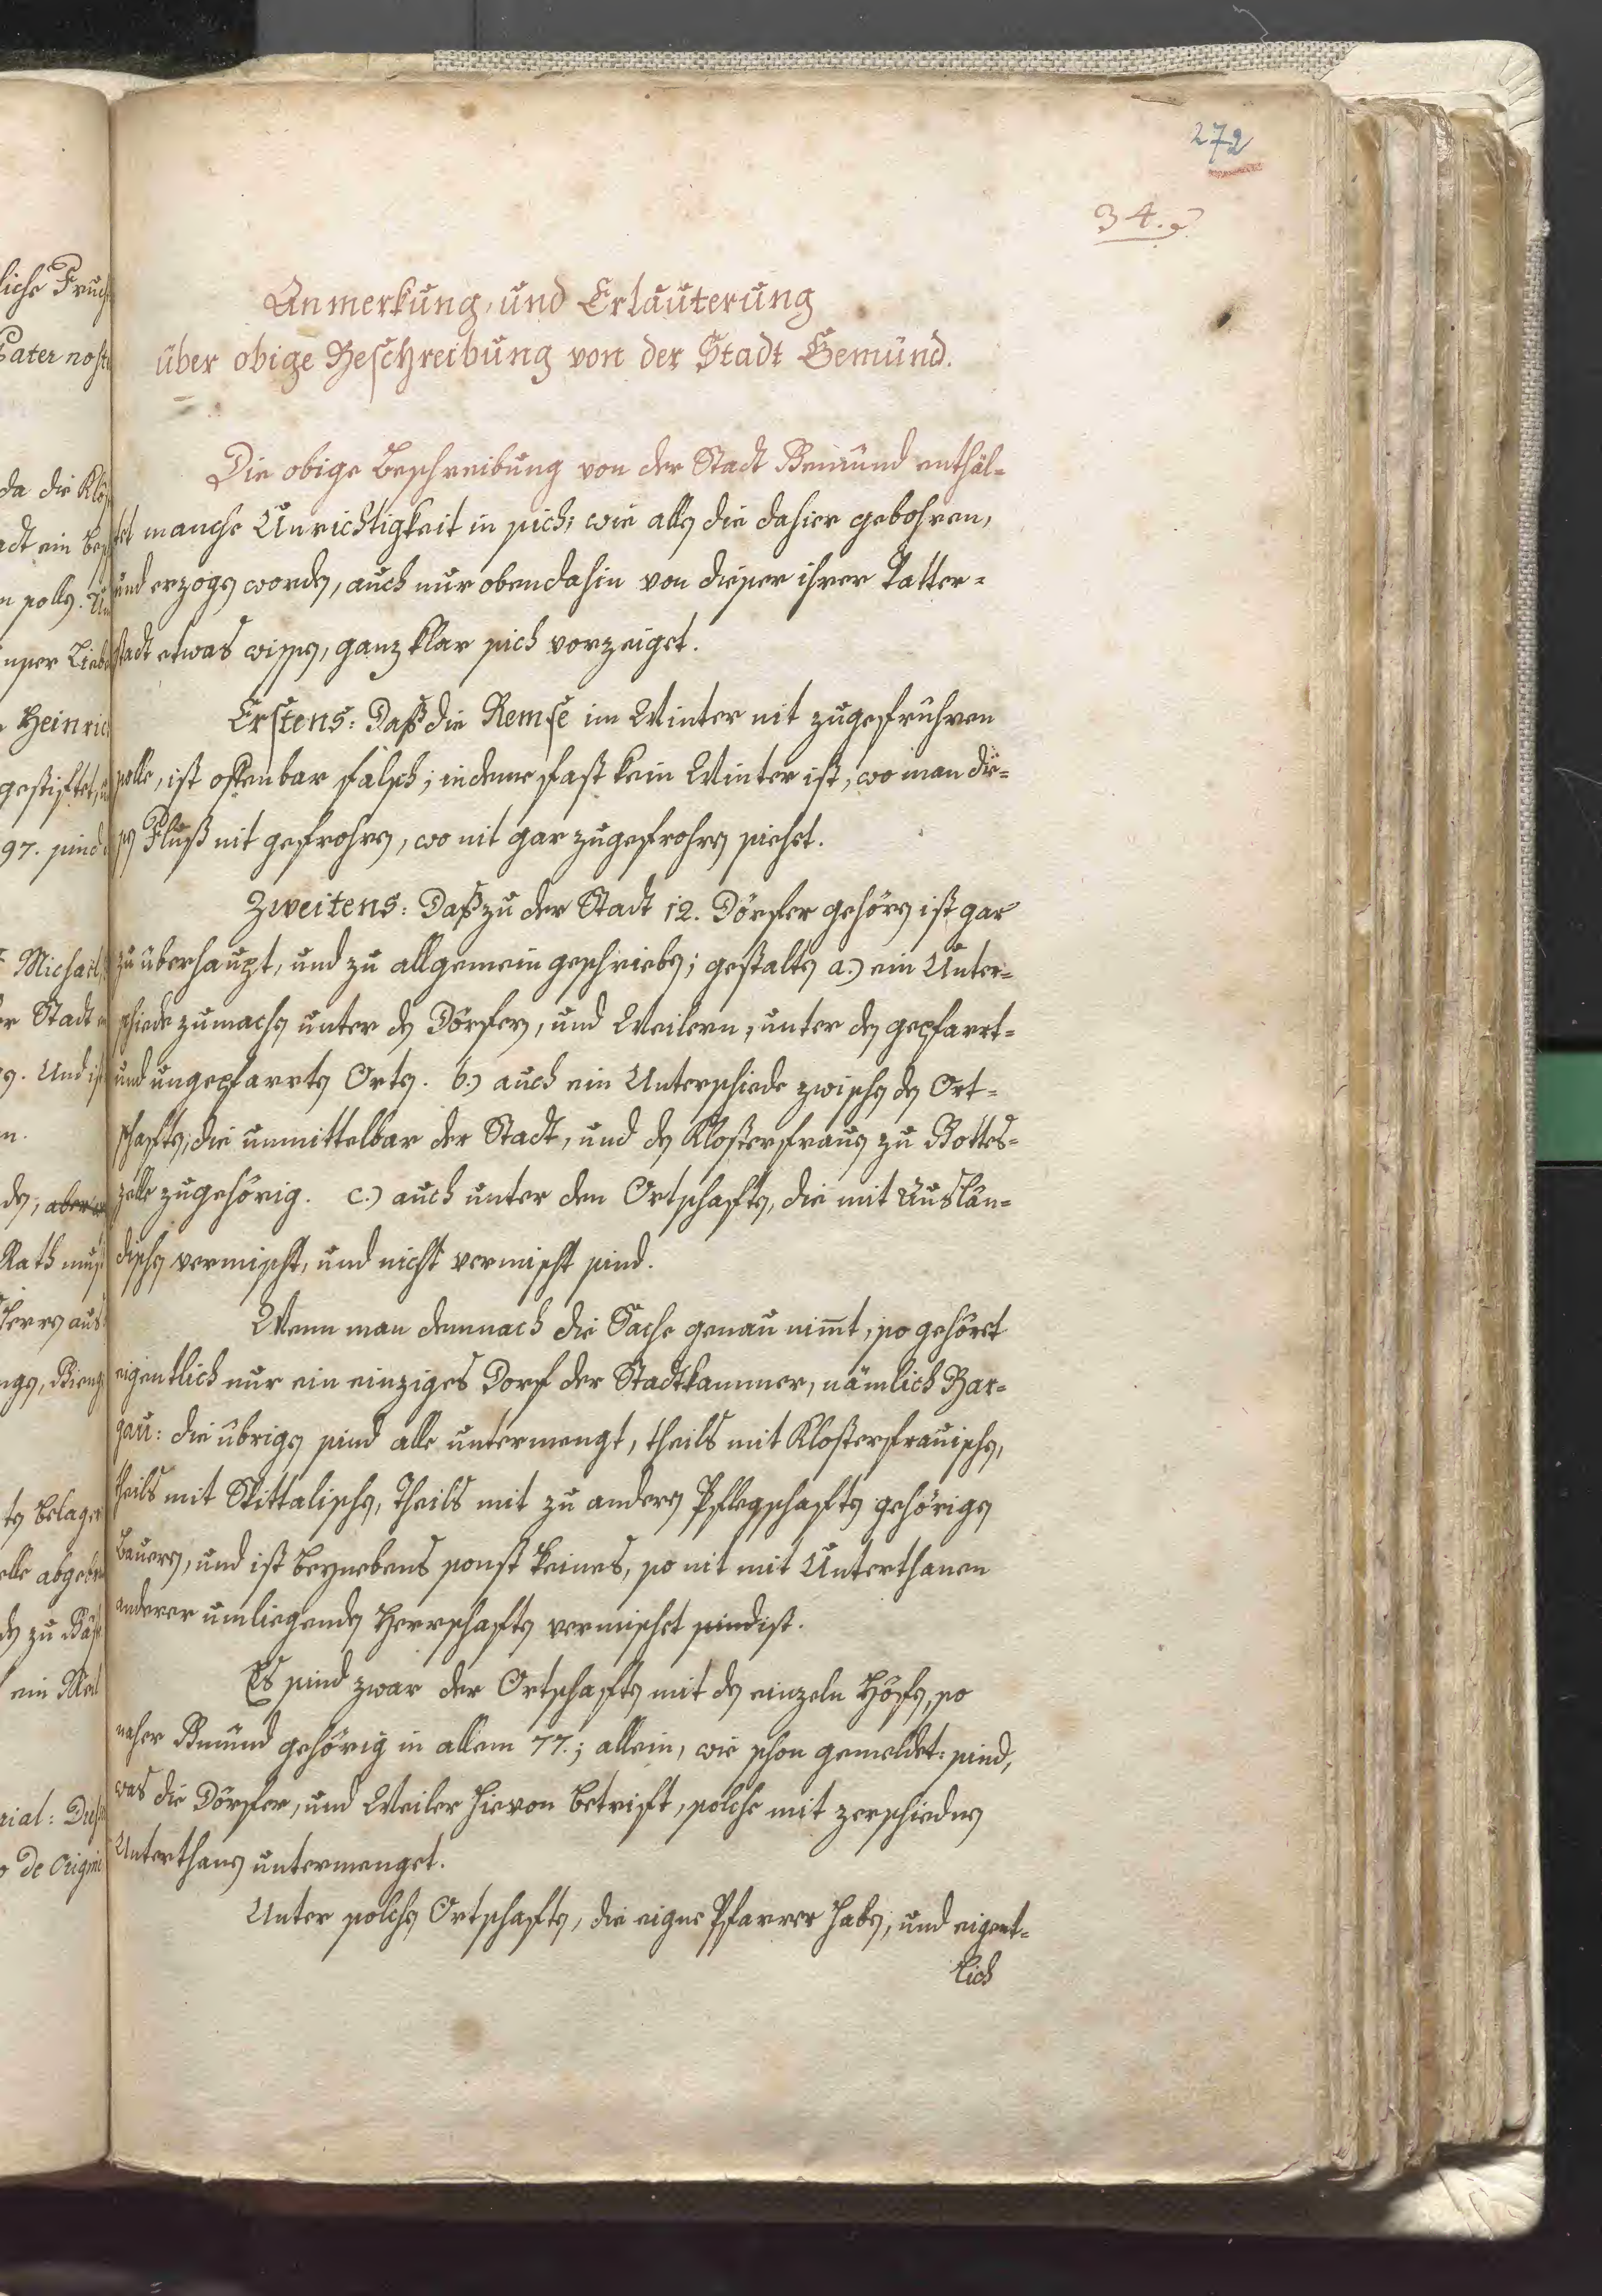 272
34.
Anmerkung, und Erläuterung
über obige Beschreibung von der Stadt Gemünd.
Die obige Beschreibung von der Stadt Gemünd enthäl-
tet manche Unrichtigkeit in sich; wie allen die dahier gebohren,
und erzogen worden, auch nur obendahin von dieser ihrer Vatter-
stadt etwas wissen, ganz klar sich vorzeiget.
Erstens: Daß die Remse im Winter nit zugefrühren
solle, ist offenbar falsch; indeme fast kein Winter ist, wo man die-
sen Fluß nit gefrohren, wo nit gar zugefrohren siehet.
Zweitens: Daß zu der Stadt 12. Dörfer gehören ist gar
zu überhaupt, und zu allgemein geschrieben; gestalten a.) ein Unter-
schiede zumachen unter den Dörfern, und Weilern, unter den gepfarrt-
und ungepfarrten Orten. b.) auch ein Unterschiede zwischen den Ort-
schaften, die unmittelbar der Stadt, und den Klosterfrauen zu Gottes-
zelle zugehörig. c.) auch unter den Ortschaften, die mit Auslän-
dischen vermischt, und nicht vermischt sind.
Wenn man demnach die Sache genau nim̄t, so gehöret
eigentlich nur ein einziges Dorf der Stadtkammer, nämlich Bar-
gau: die übrigen sind alle untermengt, theils mit Klosterfrauischen,
theils mit Spittalischen, theils mit zu andern Pflegschaften gehörigen
Bauern, und ist beynebens sonst keines, so nit mit Unterthanen
anderer umliegenden Herrschaften vermischet sind ist.
Es sind zwar der Ortschaften mit den einzeln Höfen, so
naher Gmünd gehörig in allem 77.; allein, wie schon gemeldet: sind,
was die Dörfer, und Weiler hievon betrift, solche mit zerschiednen
Unterthanen untermenget.
Unter solchen Ortschaften, die eigne Pfarrer haben, und eigent-
lich